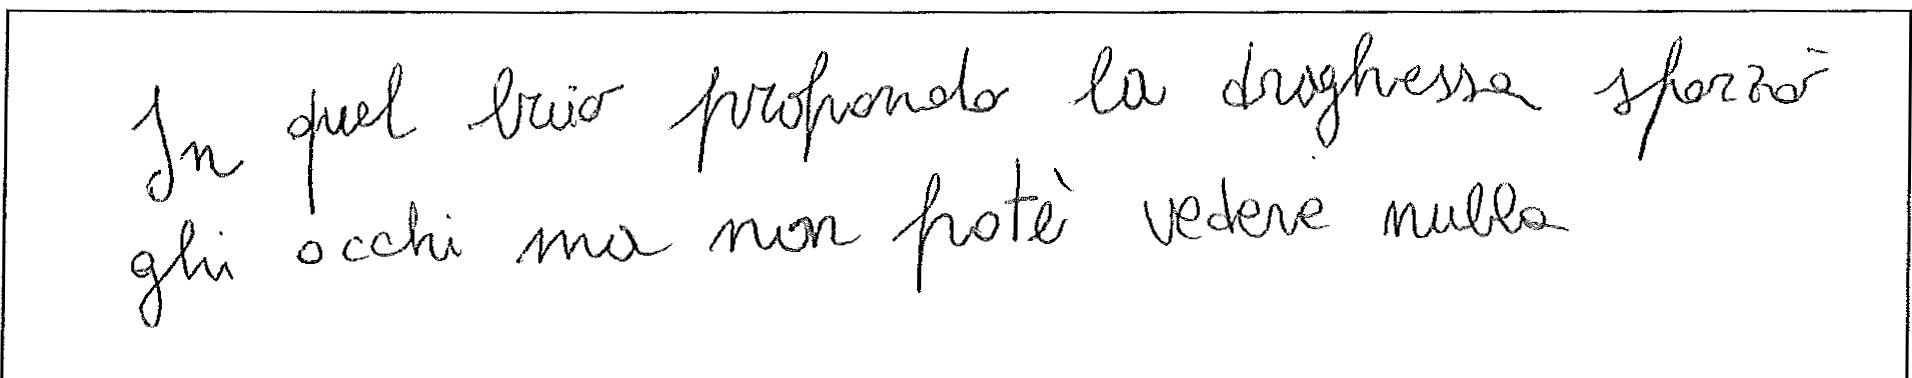 In quel buio propondo la draghessa sporzò
ghi occhi ma non potè vedere nulla